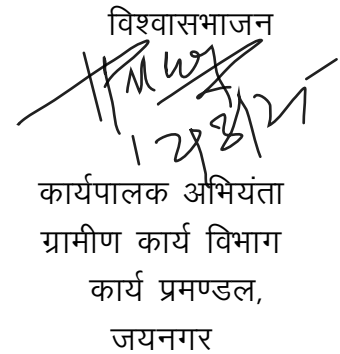 विश्वासभाजन
कार्यपालक अभियंता
ग्रामीण कार्य विभाग
कार्य प्रमण्डल,
जयनगर